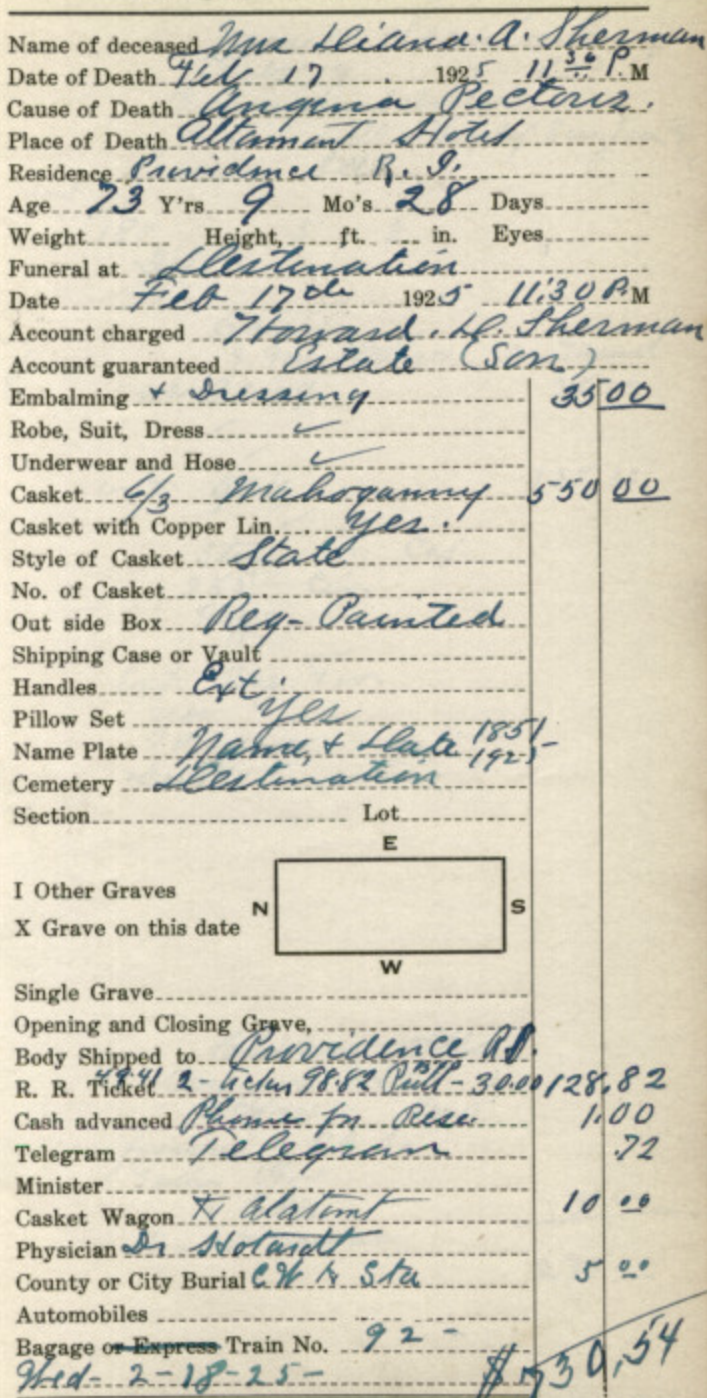 Name of deceased Mrs Diana. A. Sherman
Date of Death Feb 17 1925 11 30 P. M
Cause of Death Angina Pectoris.
Place of Death Altamont Hotel
Residence Providence R. I.
Age 73 Y'rs 9 Mo's 28 Days
Weight Height, ft. in. Eyes
Funeral at Destination
Date Feb 17th 1925 11:30 P. M
Account charged Howard. D. Sherman
Account guaranteed Estate (Son)
Embalming + Dressing 35 00
Robe, Suit, Dress ✓
Underwear and Hose ✓
Casket 6/3 Mahoganny 550 00
Casket with Copper Lin. Yes.
Style of Casket State
No. of Casket
Out side Box Reg- Painted
Shipping Case or Vault
Handles Ext.
Pillow Set Yes
Name Plate Name, + Date 1851 1925
Cemetery Destination
Section Lot
E
I Other Graves
N S
X Grave on this date
W
Single Grave
Opening and Closing Grave,
Body Shipped to Providence R.I.
R. R. Ticket 49.41 2- 98.82 Pull- 30.00 128.82
Cash advanced Phone for Rese. 1.00
Telegram Telegram .72
Minister
Casket Wagon 10 00
Physician Dr
County or City Burial C.W. to Sta 5 00
Automobiles
Bagage or Express Train No. 92-
Wed- 2-18-25- $730.54